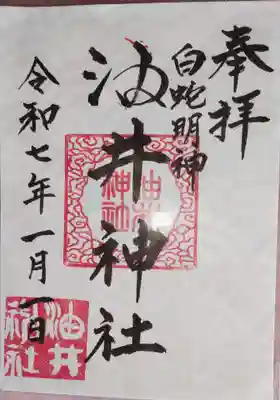 奉拝
白蛇明神
油井神社
令和七年一月一日
油井
神社
油井
神社